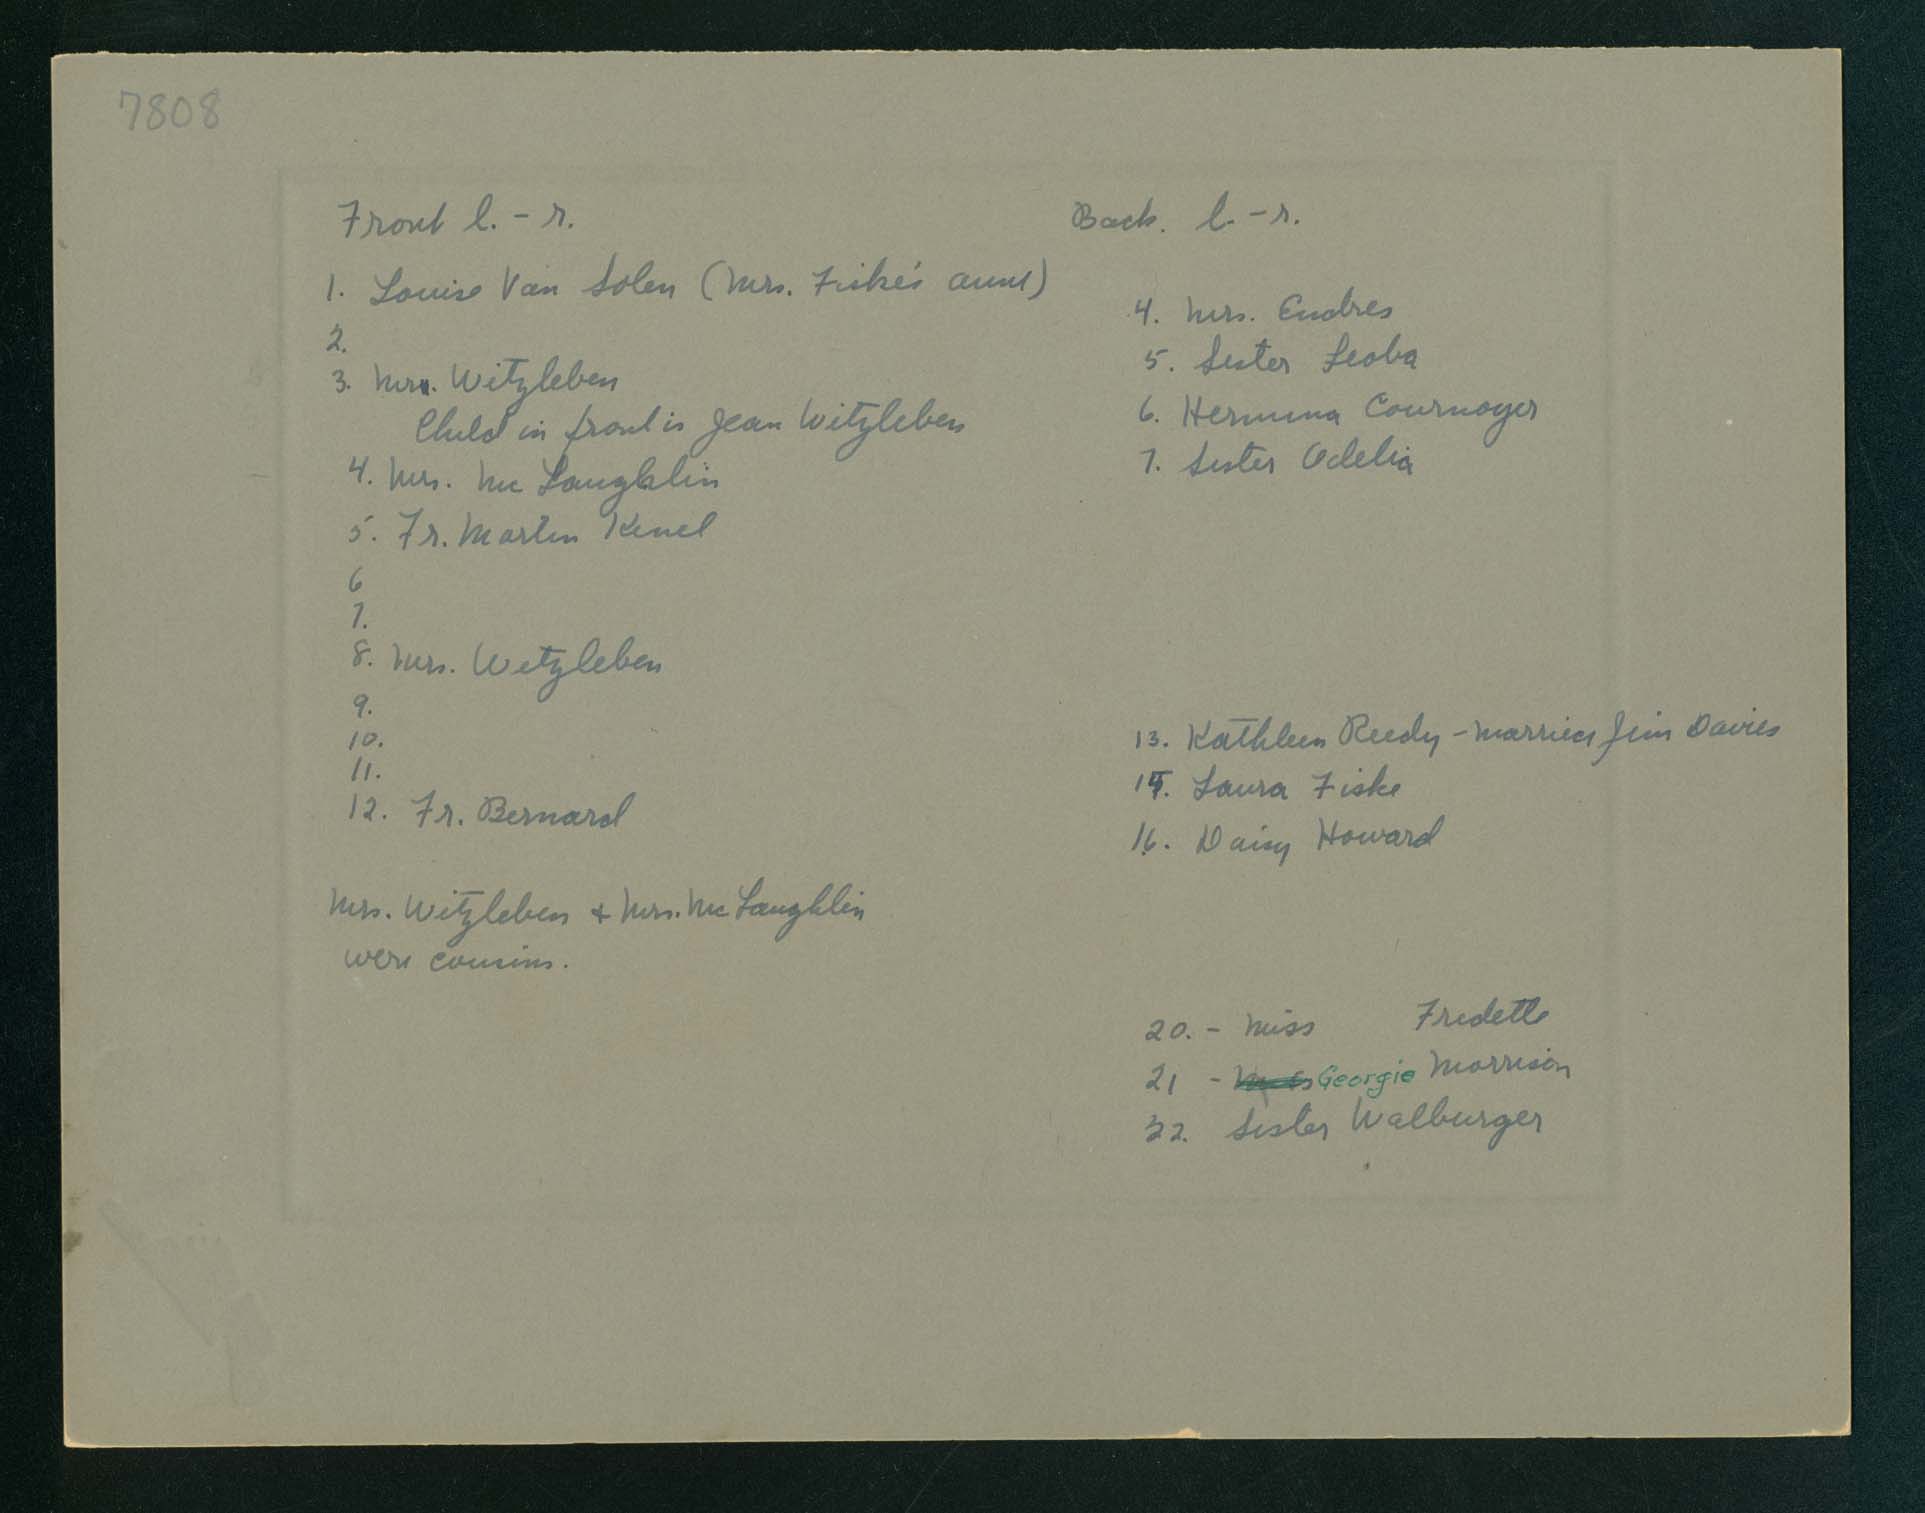 7808
Front l. - r.
1. Louise Van Solen (Mrs. Fiske's aunt)
2.
3. Mrs. Witzleben
Child in front is Jean Witzleben
4. Mrs. Mc Laughlin
5. Fr. Martin Kenel
6
7.
8. Mrs. Witzleben
9.
10.
11.
12. Fr. Bernard
Mrs. Witzleben + Mrs. Mc Laughlin
were cousins.
Back. l. - r.
4. Mrs. Endres
5. Sister Leoba
6. Hermina Cournoyer
7. Sister Odelia
13. Kathleen Reedy - married Jim Davies
15. Laura Fiske
16. Daisy Howard
20. - Miss Fredette
21 - Georgie Morrison
22. Sister Walburger